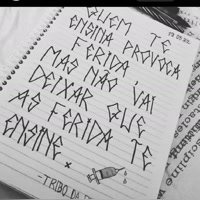 QUEM TE
ENSINA PROVOCA
FERIDA
MAS NÃO VAI
DEIXAR QUE
AS FERIDA TE
ENSINE.
-TRIBO DA